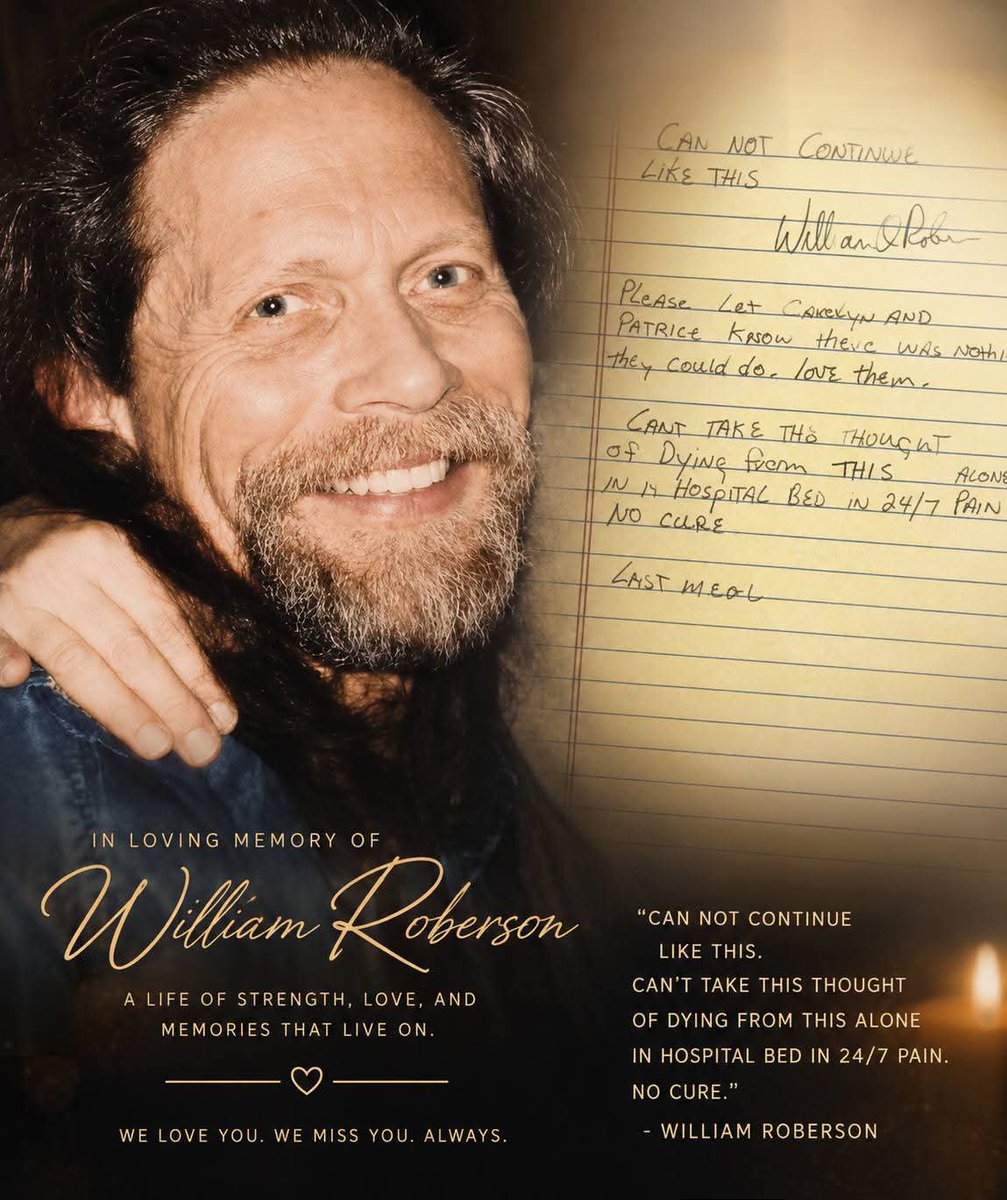 CAN NOT CONTINUE
LIKE THIS
PLEASE LET CAROLYN AND
PATRICE KNOW there WAS NOTHI
they could do. love them.
CANT TAKE THS THOUGHT
of Dying from THIS ALONE
IN HOSPITAL BED IN 24/7 PAIN
NO CURE
LAST MEAL
IN LOVING MEMORY OF
William Roberson
A LIFE OF STRENGTH, LOVE, AND
MEMORIES THAT LIVE ON.
WE LOVE YOU. WE MISS YOU. ALWAYS.
“CAN NOT CONTINUE
LIKE THIS.
CAN’T TAKE THIS THOUGHT
OF DYING FROM THIS ALONE
IN HOSPITAL BED IN 24/7 PAIN.
NO CURE.”
- WILLIAM ROBERSON